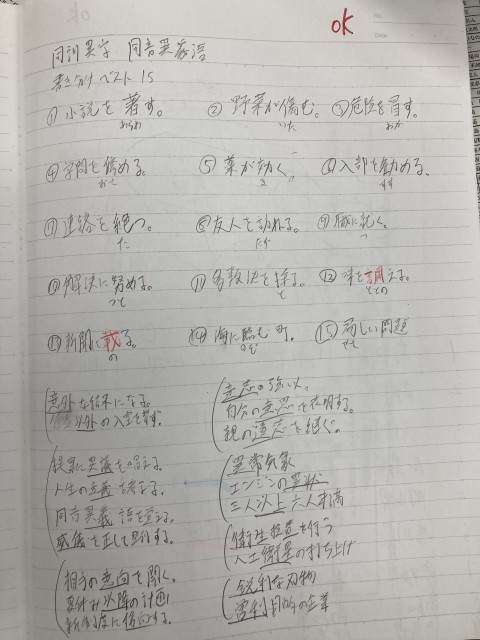 ok
同訓異字 同音異義語
書き分け ベスト15
①小説を著す。 ②野菜が傷む。 ③危険を冒す。
あらわ いた おか
④学問を修める。 ⑤薬が効く。 ⑥入部を勧める。
おさ き すす
⑦連絡を絶つ。 ⑧友人を訪ねる。 ⑨職に就く。
た たず つ
⑩解決に努める。 ⑪多数決を採る。 ⑫味を調える。
つと と ととの
⑬新聞に載る。 ⑭海に臨む町。 ⑮易しい問題
の のぞ やさ
意外な結果になる。
以外の入室を禁ず。
提案に異議を唱える。
人生の意義を考える。
同音異義語を覚える。
威儀を正して
相手の意向を聞く。
夏休み以降の計画
新制度に移行する。
意志の強い人。
自分の意思を表明する。
親の遺志を継ぐ。
異常気象
エンジンの異状
三人以上六人未満
衛生措置を行う
人工衛星の打ち上げ
鋭利な刃物
営利目的の企業